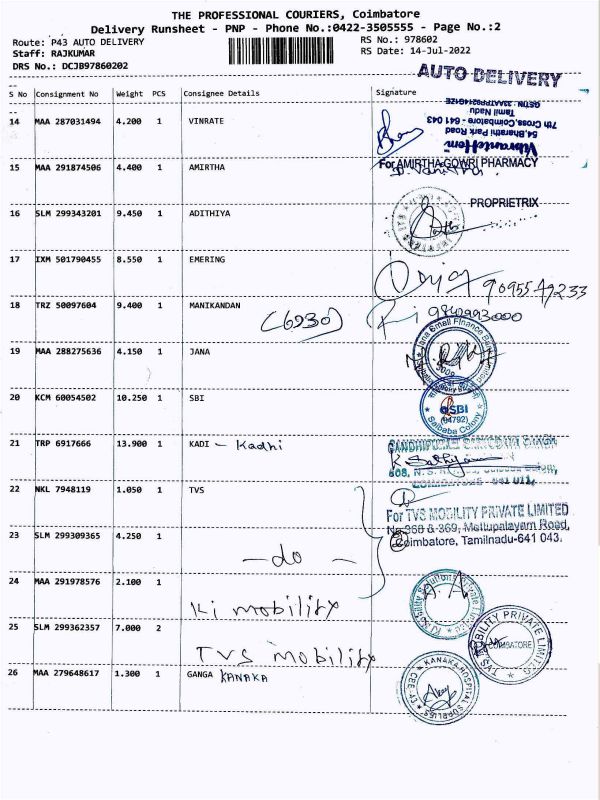 THE PROFESSIONAL COURIERS, Coimbatore
Delivery Runsheet - PNP - Phone No.:0422-3505555 - Page No.:2
Route: P43 AUTO DELIVERY
RS No.: 978602
Staff: RAJKUMAR
RS Date: 14-Jul-2022
DRS No.: DCJB97860202
AUTO DELIVERY
S No Consignment No Weight PCS Consignee Details Signature
14 MAA 287031494 4.200 1 VINRATE
54,Bharathi Park Road
7th Cross,Coimbatore - 641 043
Tamil Nadu
15 MAA 291874506 4.400 1 AMIRTHA
For AMIRTHA GOWRI PHARMACY
PROPRIETRIX
16 SLM 299343201 9.450 1 ADITHIYA
17 IXM 501790455 8.550 1 EMERING
9095549233
18 TRZ 50097604 9.400 1 MANIKANDAN
(6930)
19 MAA 288275636 4.150 1 JANA
Jana Small Finance Bank
20 KCM 60054502 10.250 1 SBI
SBI
Saibaba Colony
21 TRP 6917666 13.900 1 KADI - Kadhi
22 NKL 7948119 1.050 1 TVS
For TVS MOBILITY PRIVATE LIMITED
No 368 & 369, Mettupalayam Road,
Coimbatore, Tamilnadu-641 043.
23 SLM 299309365 4.250 1
- do -
24 MAA 291978576 2.100 1
Ki mobility
25 SLM 299362357 7.000 2
TVS mobility
TVS MOBILITY PRIVATE LIMITED
COIMBATORE
26 MAA 279648617 1.300 1 GANGA KANAKA
KANAKA HOSPITAL SUPPLIES